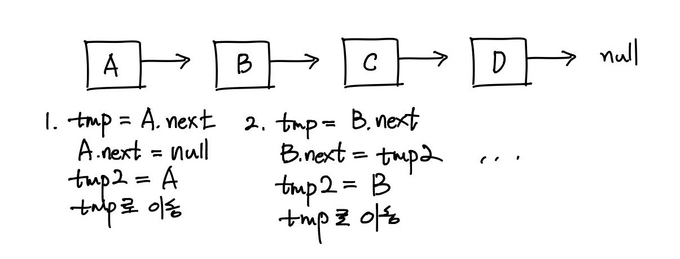 A → B → C → D → null
1. tmp = A.next
A.next = null
tmp2 = A
tmp로 이동
2. tmp = B.next
B.next = tmp2
tmp2 = B
tmp로 이동
...